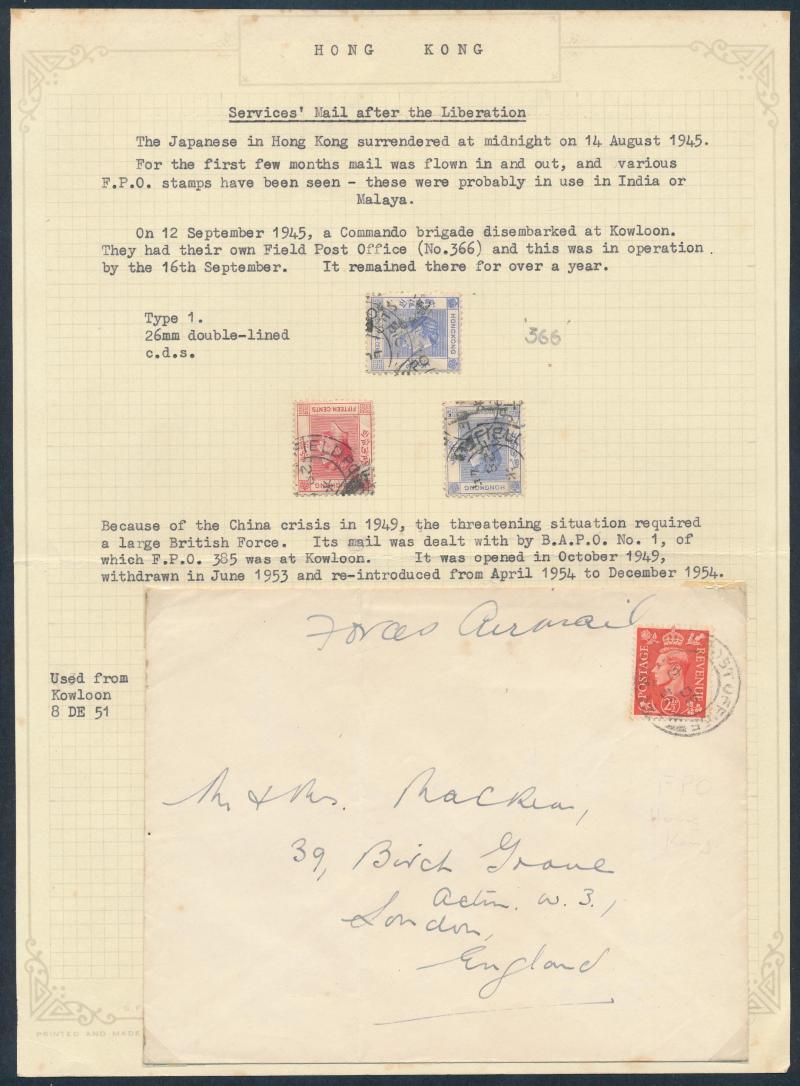 HONG KONG
Services' Mail after the Liberation
The Japanese in Hong Kong surrendered at midnight on 14 August 1945.
For the first few months mail was flown in and out, and various
F.P.O. stamps have been seen - these were probably in use in India or
Malaya.
On 12 September 1945, a Commando brigade disembarked at Kowloon.
They had their own Field Post Office (No.366) and this was in operation
by the 16th September. It remained there for over a year.
Type 1.
26mm double-lined
c.d.s.
HONGKONG
366
FIFTEEN CENTS
FIELD PO
FIELD
HONGKONG
Because of the China crisis in 1949, the threatening situation required
a large British Force. Its mail was dealt with by B.A.P.O. No. 1, of
which F.P.O. 385 was at Kowloon. It was opened in October 1949,
withdrawn in June 1953 and re-introduced from April 1954 to December 1954.
Forces Airmail
POSTAGE REVENUE
2½
POST OFFICE
Used from
Kowloon
8 DE 51
FPO
Hong
Kong
Mr & Mrs.
39, Birch Grove
Acton. W.3.,
London,
England
PRINTED AND MADE